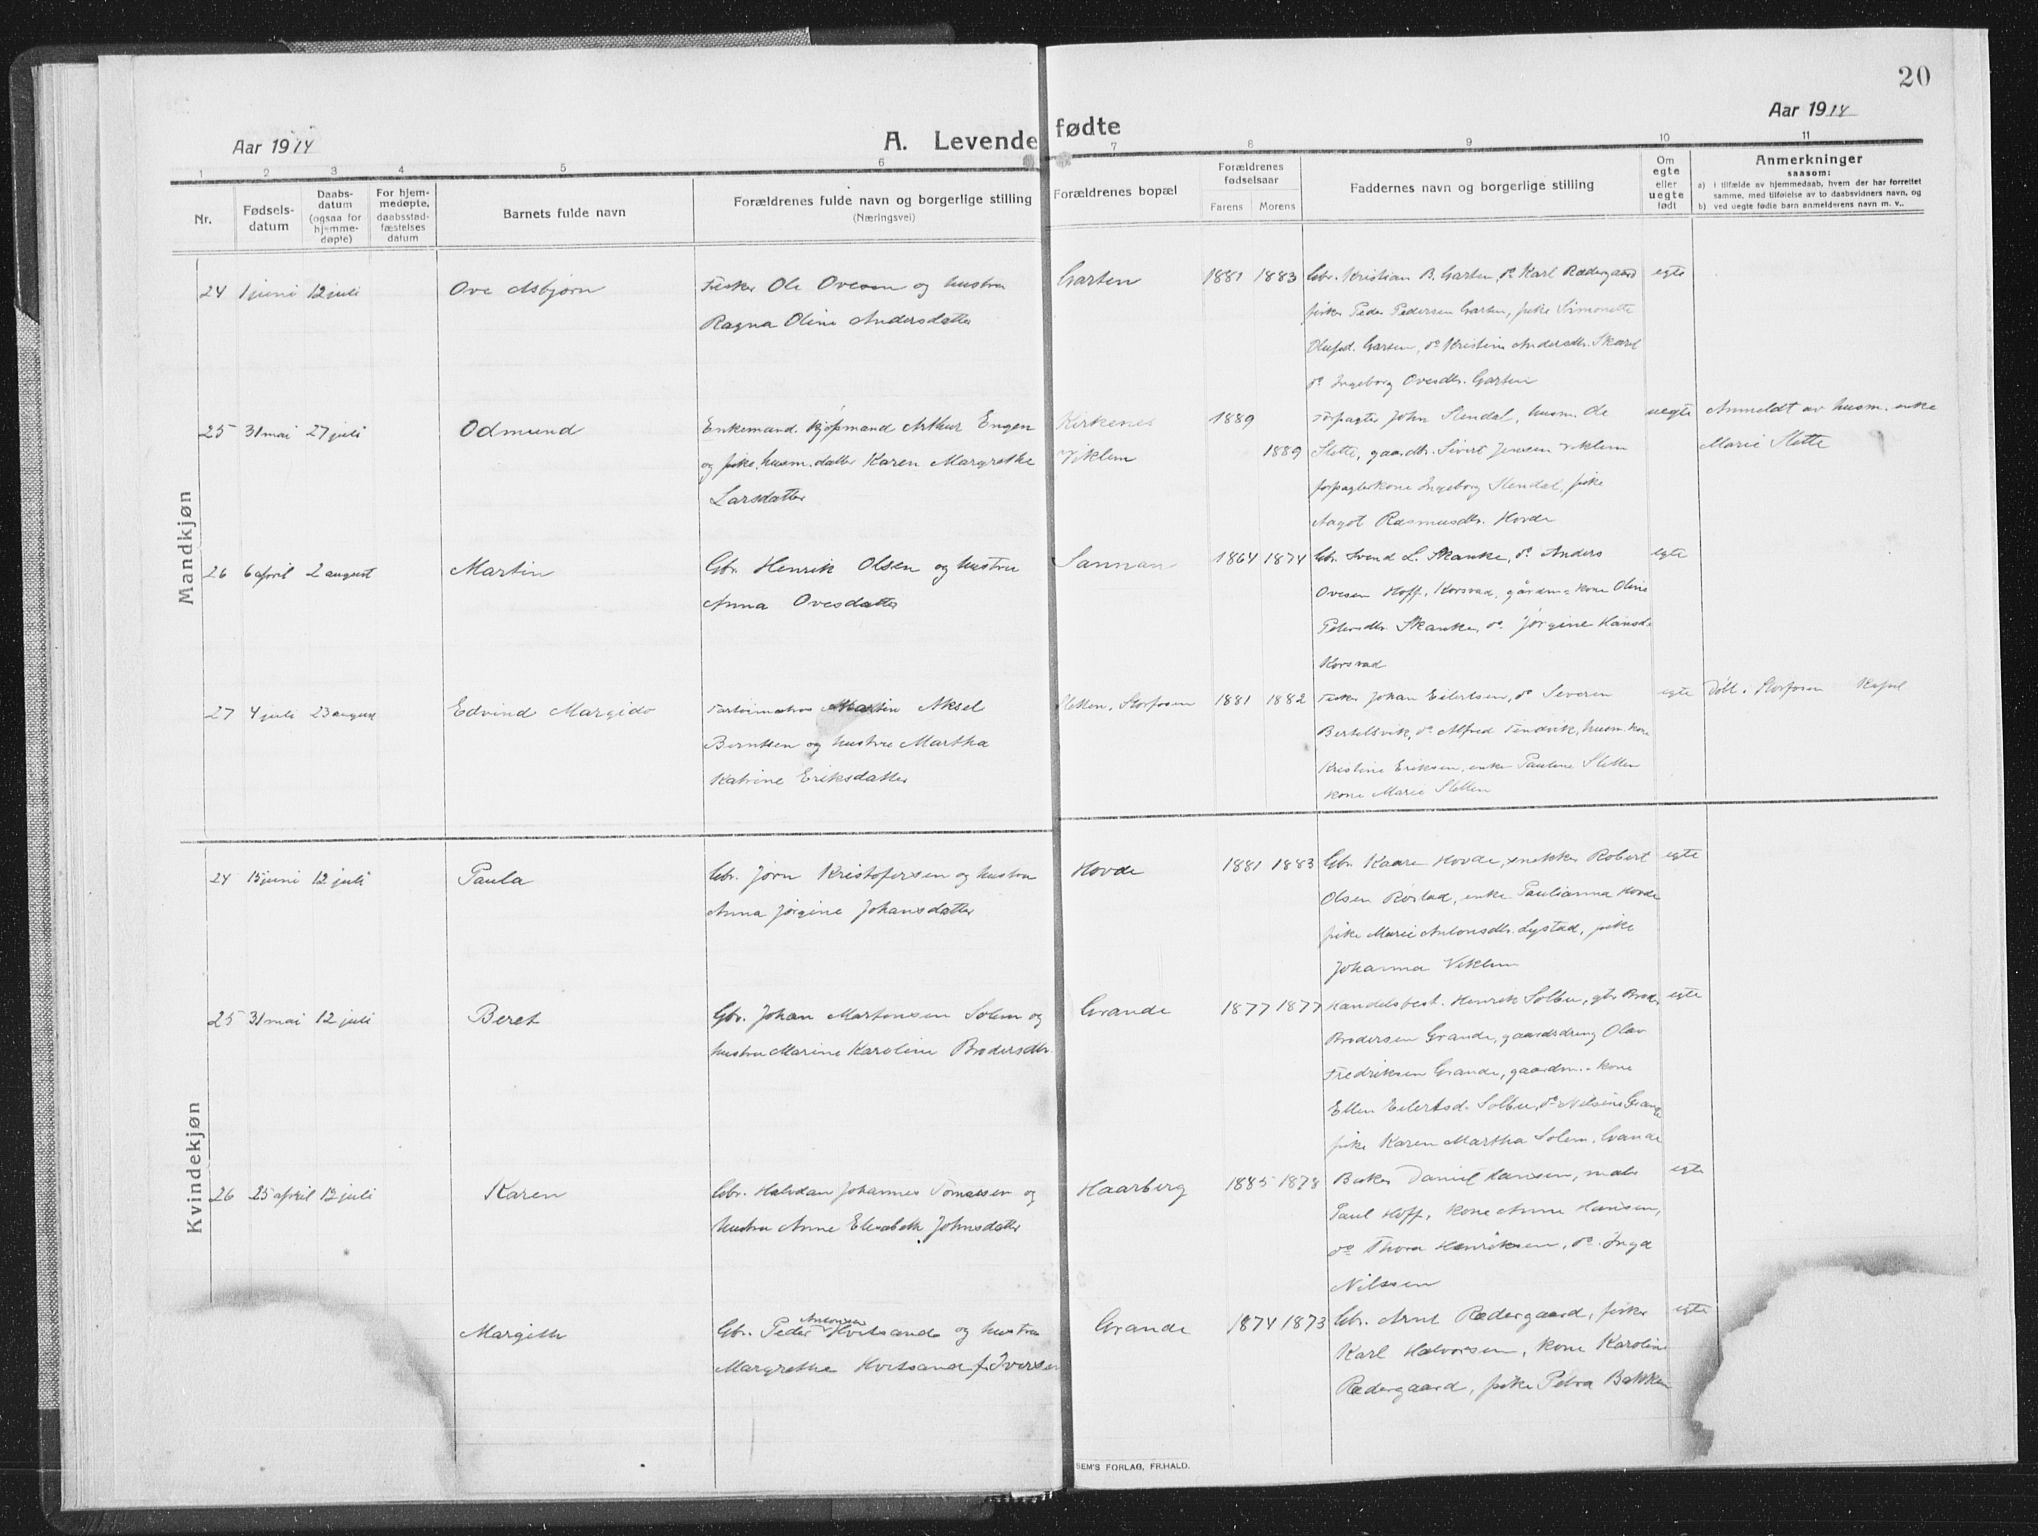 20
Aar 1914
A. Levendefødte
Aar 1914
1 2 3 4 5 6 7 8 9 10 11
Nr.
Fødsels-
datum
Daabs-
datum
(ogsaa for
hjemme-
døpte)
For hjem-
medøpte,
daabsstad-
fæstelses
datum
Barnets fulde navn
Forældrenes fulde navn og borgerlige stilling
(Næringsvei)
Forældrenes bopæl
Forældrenes
fødselsaar
Farens Morens
Faddernes navn og borgerlige stilling
Om
egte
eller
uegte
født
Anmerkninger
saasom:
a) i tilfælde av hjemmedaab, hvem der har forrettet
samme, med tilføielse av to daabsvidners navn, og
b) ved uegte fødte barn anmelderens navn m. v..
Mandkjøn
24 1 juni 12 juli Ove Asbjørn
Fisker Ole Ovesen og hustru
Ragna Oline Andersdatter
Garten 1881 1883
Gbr. Kristian B. Garten, do Karl Rædergaard
fisker Peder Pedersen Garten, pike Simonette
Olufsd. Garten, do Kristine Andersdtr. Skavel
do Ingeborg Ovesdtr. Garten
egte
25 31 mai 27 juli Odmund
Enkemand, kjøpmand Arthur Engen
og pike, husm. datter Karen Margrethe
Larsdatter
Kirkenes 1889
Viklem 1889
Forpagter John Slendal, husm. Ole
Slette, gaardbr. Sivert Jensen Viklem
forpagterkone Ingeborg Slendal, pike
Aagot Rasmusdtr. Hovde
uegte
Anmeldt av husm. enke
Marie Slette
26 6 april 2 august Martin
Gbr. Henrik Olsen og hustru
Anna Ovesdatter
Sannan 1864 1874
Gbr. Svend L. Skanke, do Anders
Ovesen Hoff, Korsvad, gårdm = kone Oline
Petersdtr. Skanke, do Jørgine Hansd.
Korsvad
egte
27 4 juli 23 august Edvind Margido
Martin Aksel
Berntsen og hustru Martha
Katrine Eriksdatter
Sletten, Storfosen 1881 1882
Fisker Johan Eilertsen, do Severin
Bertelsvik, do Alfred Tendvik, husm. kone
Kristine Eriksen, enke Pauline Sletten
kone Marie Sletten
egte
Døbt i Storfosen Kapel
Kvindekjøn
24 15 juni 12 juli Paula
Gbr. Jørn Kristofersen og hustru
Anna Jørgine Johansdatter
Hovde 1881 1883
Gbr. Kaare Hovde, snekker Robert
Olsen Røstad, enke Paulianna Hovde
pike Marie Antonsdtr. Lystad, pike
Johanna Viklem
egte
25 31 mai 12 juli Beret
Gbr. Johan Martensen Solem og
hustru Marine Karoline Brodersdtr.
Grande 1877 1877
Handelsbest. Henrik Solbu, gbr. Broder
Brodersen Grande, gaardsdreng Olav
Fredriksen Grande, gaardm. = kone
Ellen Eilertsd. Solbu, do Nilsine Grande
pike Karen Martha Solem, Grande
egte
26 25 april 12 juli Karen
Gbr. Halvdan Johannes Tomassen og
hustru Anne Elisabeth Johnsdatter
Haarberg 1885 1878
Baker Daniel Hansen, maler
Paul Hoff, kone Anna Hansen,
do Thora Henriksen, do Inga
Nilssen
egte
Margith
Gbr. Peder Antonsen Hvitsande og hustru
Margrethe Hvitsande f. Iversen
Grande 1874 1873
Gbr. Arnt Rædergaard, fisker
Karl Halvorsen, kone Karoline
Rædergaard, pike Petra Bakken
egte
SEM'S FORLAG, FR.HALD.